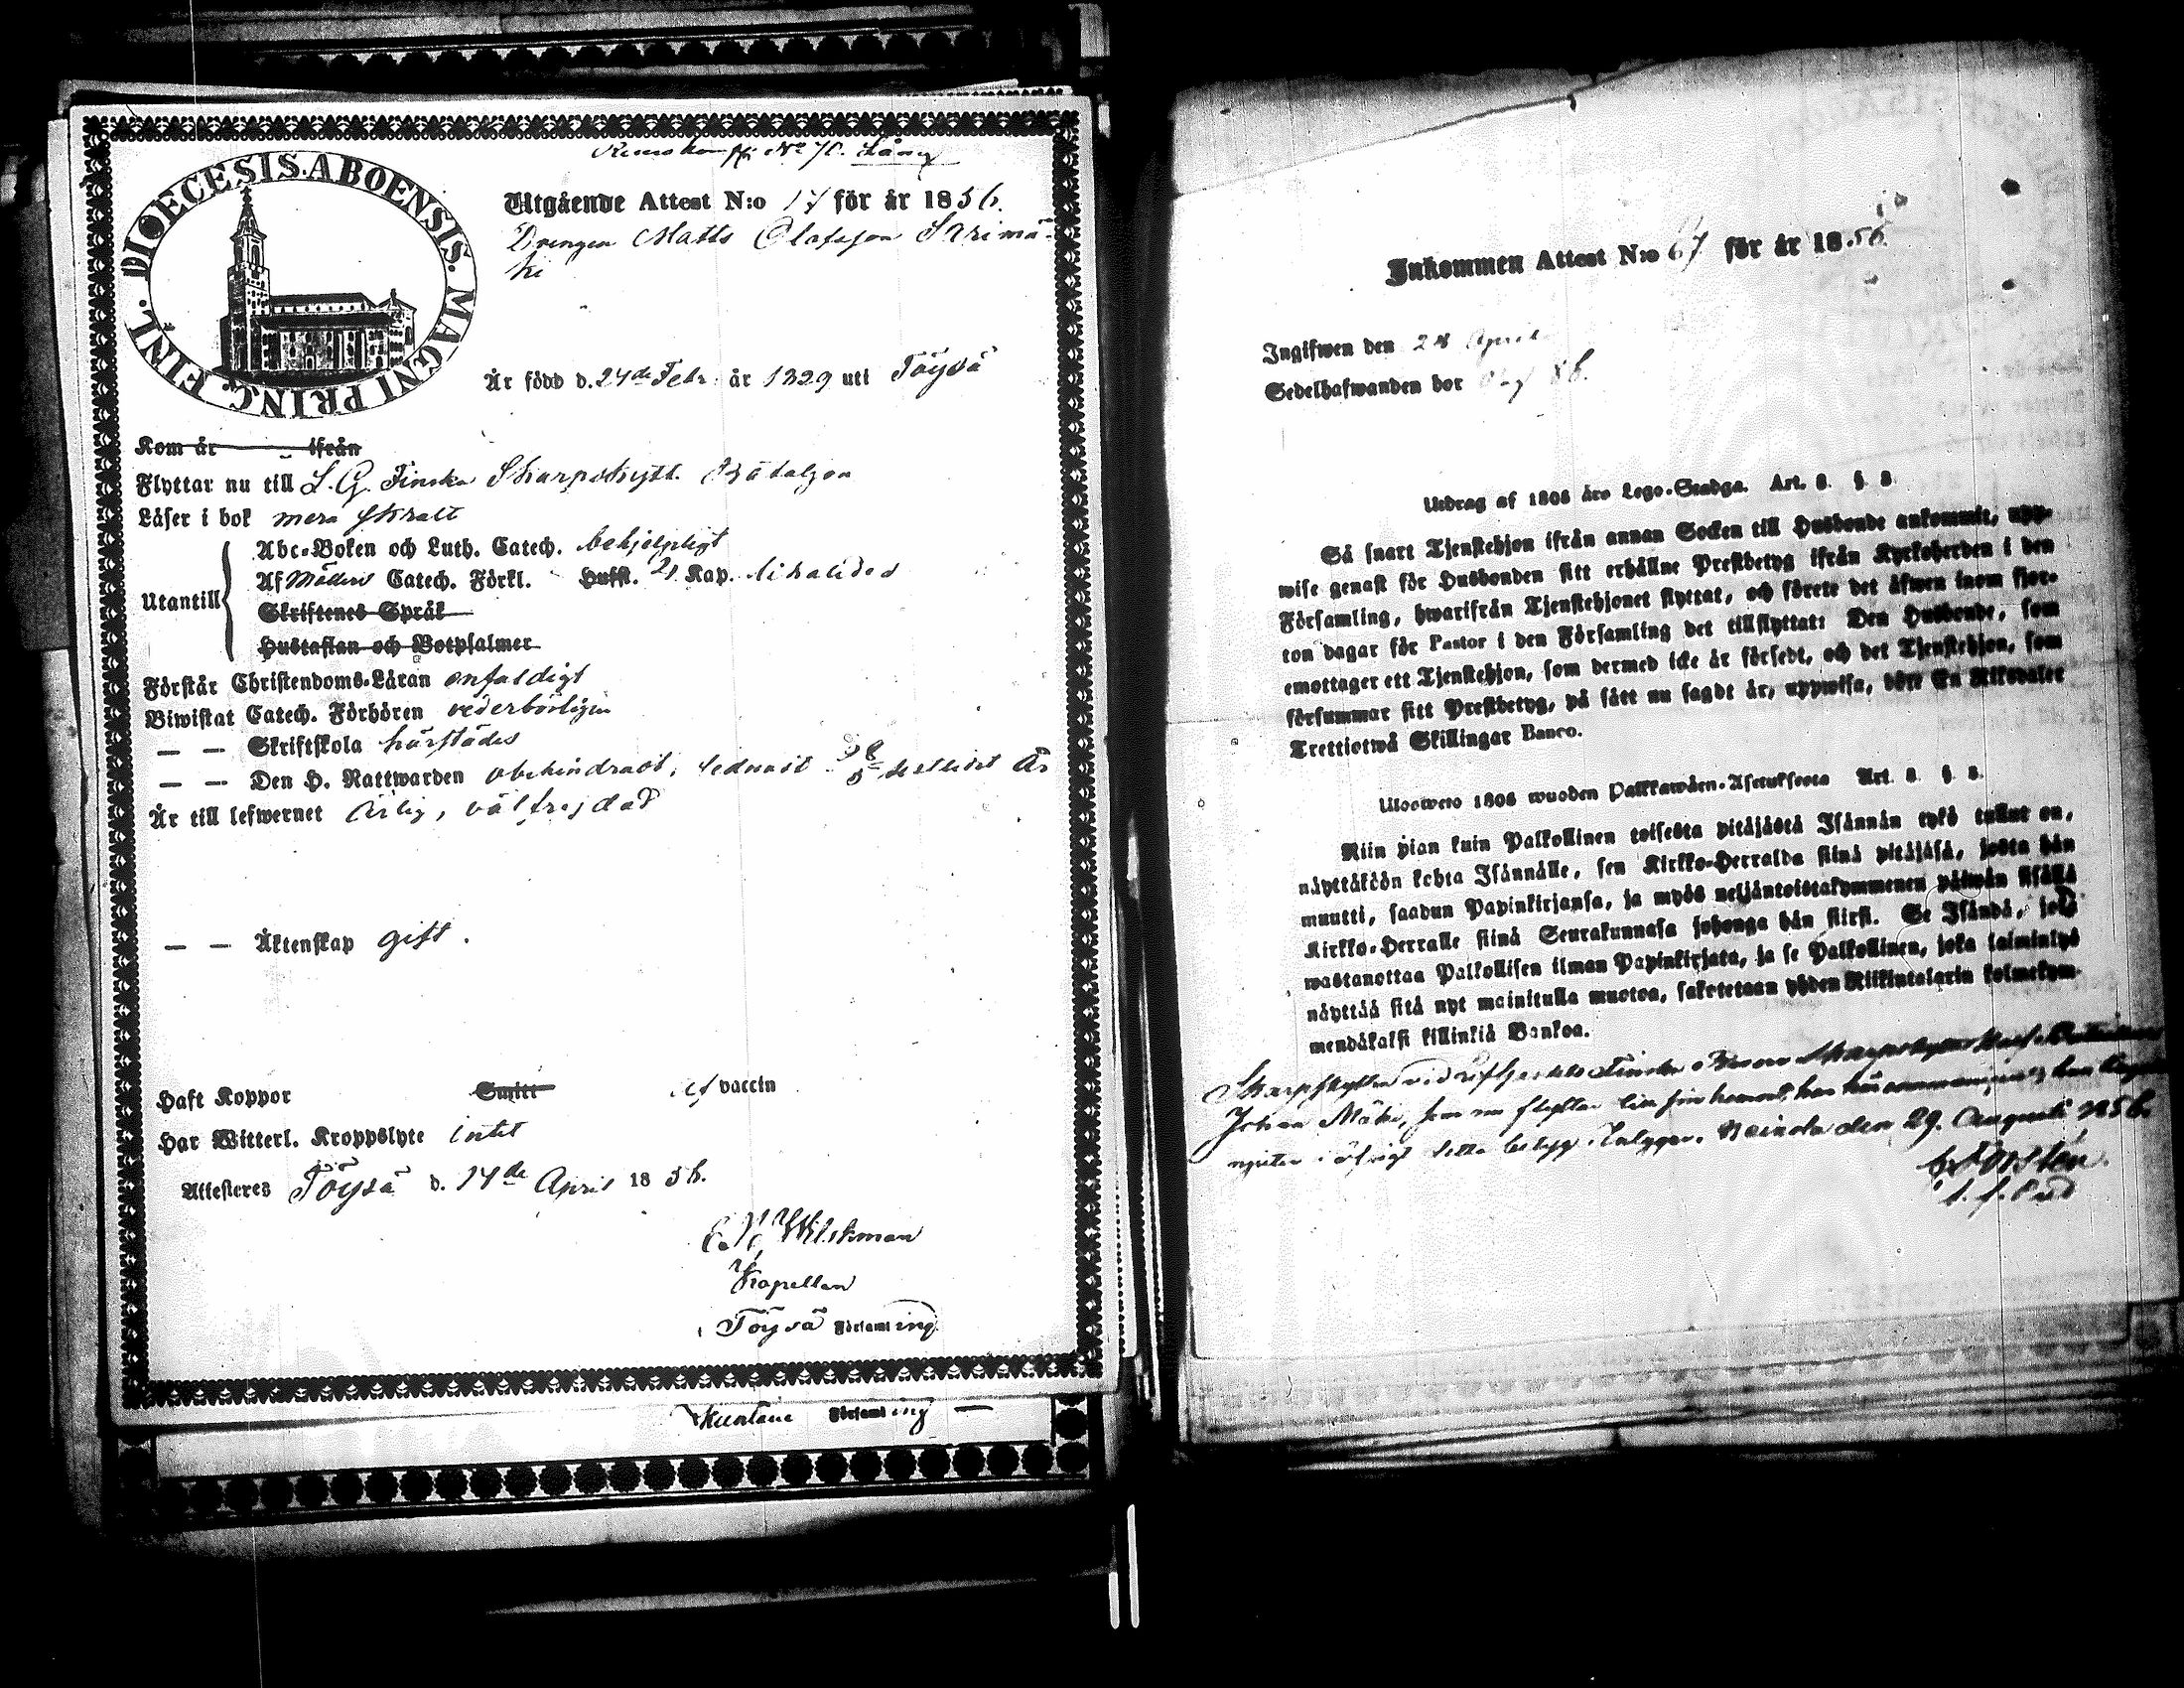 No 70.
DIOECESIS. ABOENSIS. MAGNI PRINC. FINL.
Utgående Attest N:o 17 för år 1856.
Drengen Matts Olofsson
ki
Är född d. 24de Febr. år 1829 uti Töysä
Kom år ifrån
Flyttar nu till L. G. Finska Skarpskytt. Bataljon
Läser i bok mera
Abc-Boken och Luth. Catech. behjelpligt
Utantill
Af Möllers Catech. Förkl. Husst. 21 Kap.
Skriftenes Språk
Hustaflan och Botpsalmer
Förstår Christendoms-Läran enfaldigt
Biwistat Catech. Förhören vederbörligen
— — Skriftskola härstädes
— — Den H. Nattwarden obehindradt, sednast
Är till lefwernet ärlig, välfrejdad
— — Äktenskap gift.
Haft Koppor Smitt af vaccin
Har Witterl. Kroppslyte intet
Attesteras Töysä d. 14de April 1856.
Kapellan
Töysä Församling
Församling —
Inkommen Attest N:o 67 för år 1856.
Ingifwen den 28 April
Sedelhafwanden bor
Utdrag af 1805 års Lego-Stadga. Art. 8. §. 8.
Så snart Tjenstehjon ifrån annan Socken till Husbonde ankommit, upp-
wise genast för Husbonden sitt erhållne Prestbetyg ifrån Kyrkoherden i den
Församling, hwarifrån Tjenstehjonet flyttat, och förete det äfwen inom fjor-
ton dagar för Pastor i den Församling det tillflyttat: Den Husbonde, som
emottager ett Tjenstehjon, som dermed icke är försedt, och det Tjenstehjon, som
försummar sitt Prestbetyg, på sätt nu sagdt är, uppwisa, böte En Riksdaler
Trettiotwå Skillingar Banco.
Uloswero 1805 wuoden Palkkawäen-Asetuksesta Art. 8. §. 8.
Niin pian kuin Palkollinen toisesta pitäjästä Isännän tykö tullut on,
näyttäköön kohta Isännälle, sen Kirkko-Herralda siinä pitäjäsä, josta hän
muutti, saadun Papinkirjansa, ja myös neljäntoistakymmenen päiwän sisällä
Kirkko-Herralle siinä Seurakunnasa johonga hän siirsi. Se Isändä, joka
wastanottaa Palkollisen ilman Papinkirjata, ja se Palkollinen, joka laiminlyö
näyttää sitä nyt mainitulla muotoa, sakotetaan yhden Riikintalarin kolmekym-
mendäkaksi killinkiä Bankoa.
Johan Mäki, som nu flyttar
den 29. Augusti 1856.